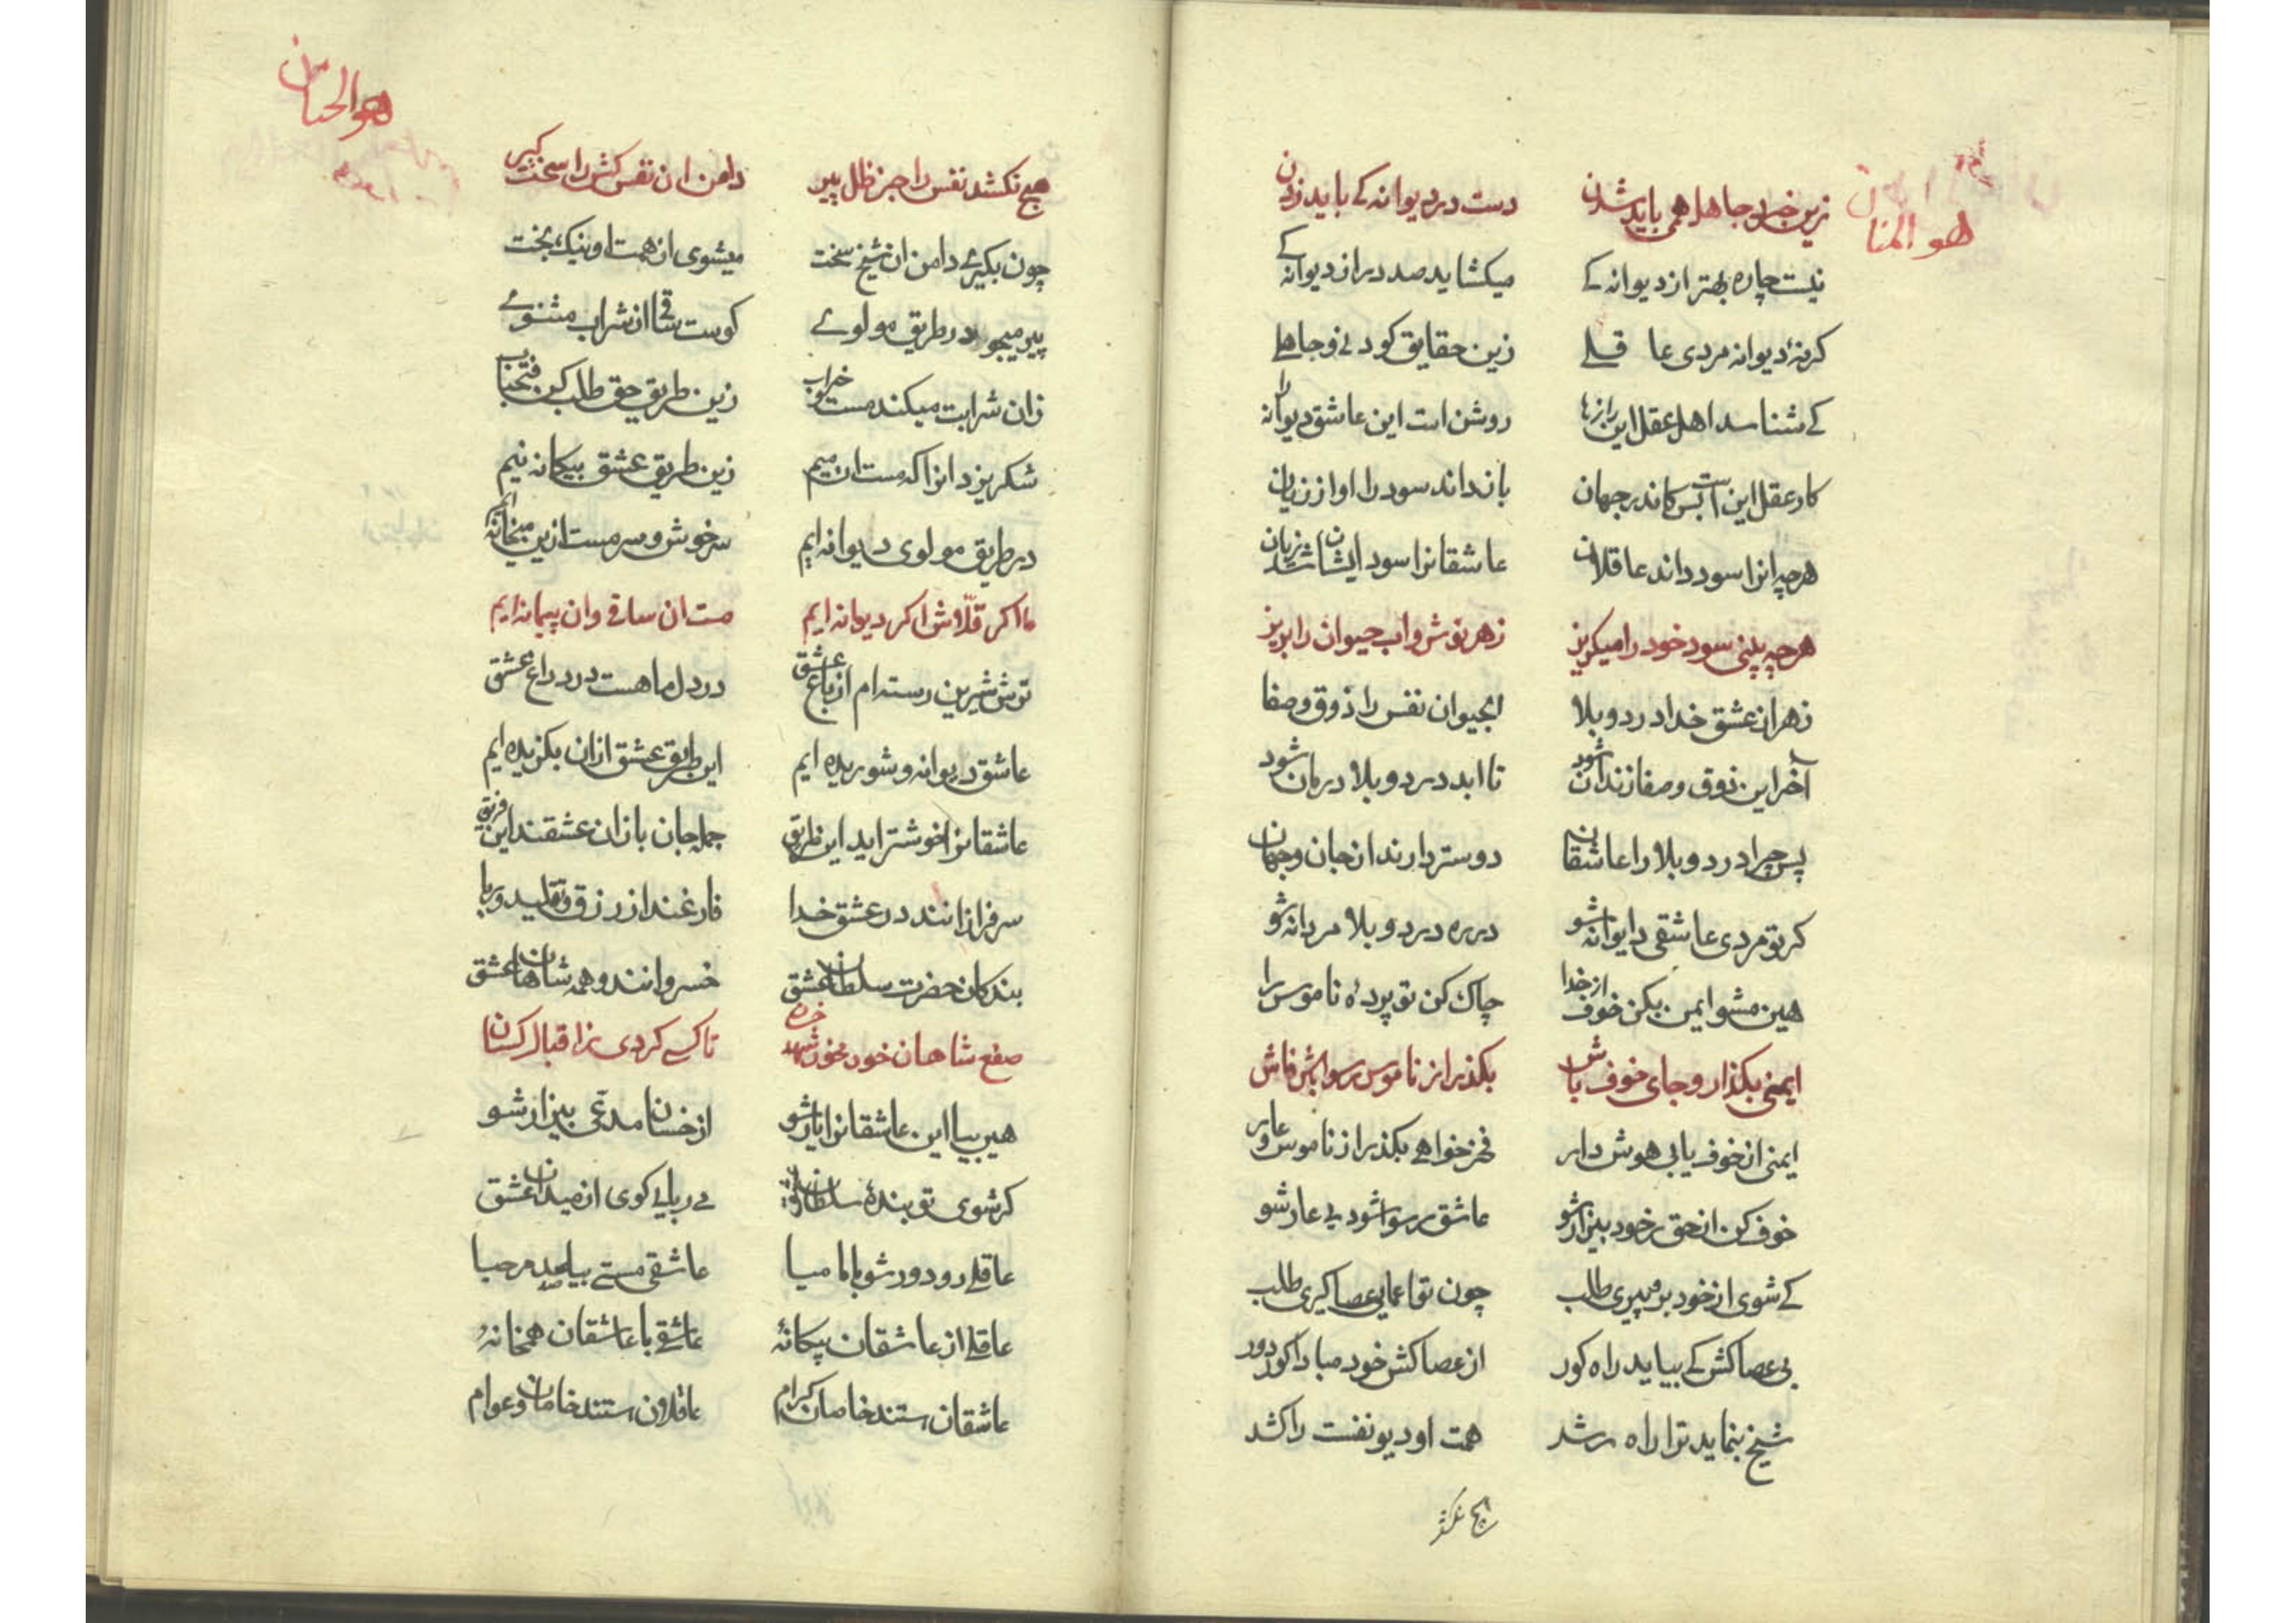 هو المنان
زین خرد جاهل همی باید شدن دست در دیوانه کے باید زدن
نیست چاره بهتر از دیوانه کے میکشاید صد در از دیوانه کے
کرنهٔ دیوانه مردی عا قلے زین حقایق کودنی و جاهلے
کے شناسد اهل عقل این رازها روشن است این عاشق دیوانه را
کار عقل این است بس کاندر جهان بازداند سود را او از زیان
هرچه انرا سود داند عاقلان عاشقانرا سود ایشان شد زیان
هرچه بینی سود خود را میکریز زهر نوش و اب حیوان را بریز
زهر ان عشق خدا درد و بلا ابحیوان نفس را ذوق و صفا
آخر این ذوق و صفا زندان شود تا ابد درد و بلا درمان شود
پس چرا درد و بلا را عاشقان دوستر دارند از جان و جهان
کر تو مردی عاشقی دیوانه شو در ره درد و بلا مردانه شو
هین مشو ایمن بکن خوف از خدا چاک کن تو پردهٔ ناموس را
ایمنی بکذار و جای خوف باش بکذر از ناموس رسوا باش فاش
ایمنی از خوف یابی هوش دار فخر خواهے بکذر از ناموس و عار
خوف کن از حق ز خود بیزار شو عاشق رسوا شود بی عار شو
کے شوی از خود برو پیری طلب چون تو اعمایی عصا کیری طلب
بی عصاکش کے بیاید راه کور از عصاکش خود مبادا کور دور
شیخ بنماید ترا راه رشد همت او دیو نفست را کشد
هیچ نکشد
هو الحنان
هیچ نکشد نفس را جز ظل پیر دامن ان نفس کش را سخت کیر
چون بکیرے دامن ان شیخ سخت میشوی از همت او نیک بخت
پیر میجو در طریق مولوے کوست ساقی ان شراب مثنوے
زان شرابت میکند مست خراب زین طریق حق طلب کن فتحباب
شکر یزدانرا که مست ان میم زین طریق عشق بیکانه نیم
در طریق مولوی دیوانه ایم سرخوش و سرمست ازین میخانه ایم
ما اکر قلاش اکر دیوانه ایم مست ان ساقی وان پیمانه ایم
ترش شیرین رسته ام از باغ عشق در دل ما هست درد داغ عشق
عاشق دیوانه و شوریده ایم این طریق عشق ازان بکزیده ایم
عاشقانرا خوشتر اید این طریق جمله جان بازان عشقند این فریق
سرفرازانند در عشق خدا فارغند از رزق و تقلید و ریا
بندکان حضرت سلطان عشق خسروانند و همه شاهان عشق
صفع شاهان خور مخور شهد خسان تا کسے کردی ز اقبال کسان
هین بیا این عاشقانرا یار شو از خسان مدعی بیزار شو
کر شوی تو بندهٔ سلطان عشق مے ربایے کوی از میدان عشق
عاقلے رو دور شو با ما میا عاشقی مستے بیا صد مرحبا
عاقلے از عاشقان بیکانهٔ عاشقے با عاشقان همخانهٔ
عاشقان استند خاصان کرام عاقلان استند خامان و عوام